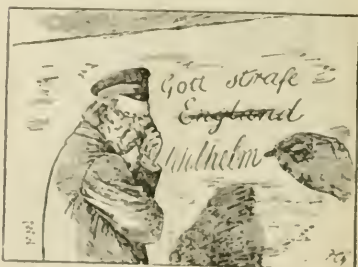 Gott strafe
England
Wilhelm